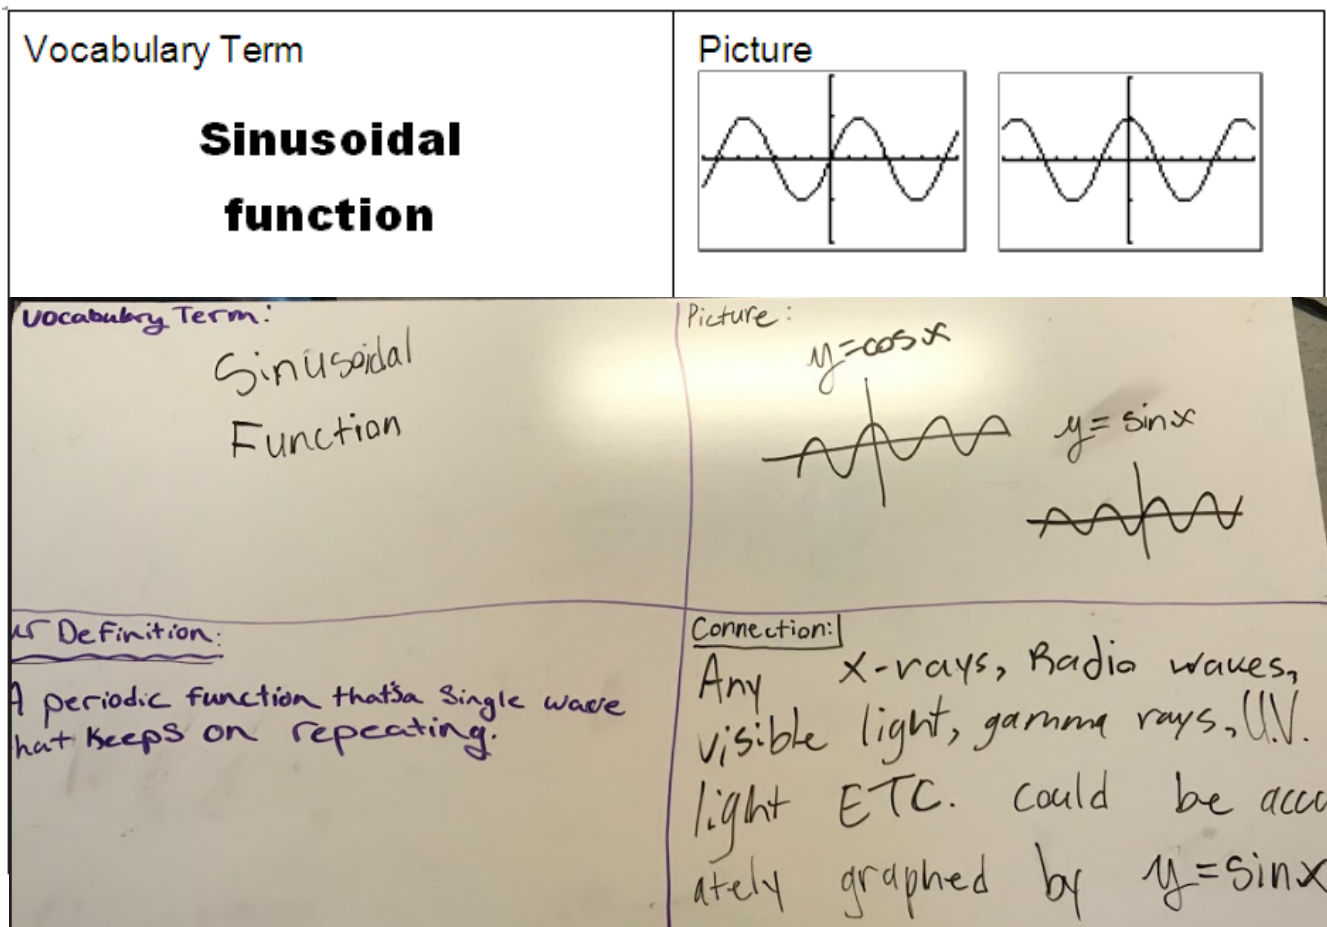 Vocabulary Term
Sinusoidal
function
Picture
Vocabulary Term:
Sinusoidal
Function
Picture:
y=cosx
y=sinx
Definition:
periodic function that's a single wave
keeps on repeating.
Connection:
Any x-rays, Radio waves,
visible light, gamma rays, U.V.
light ETC. could be
ately graphed by y=sinx